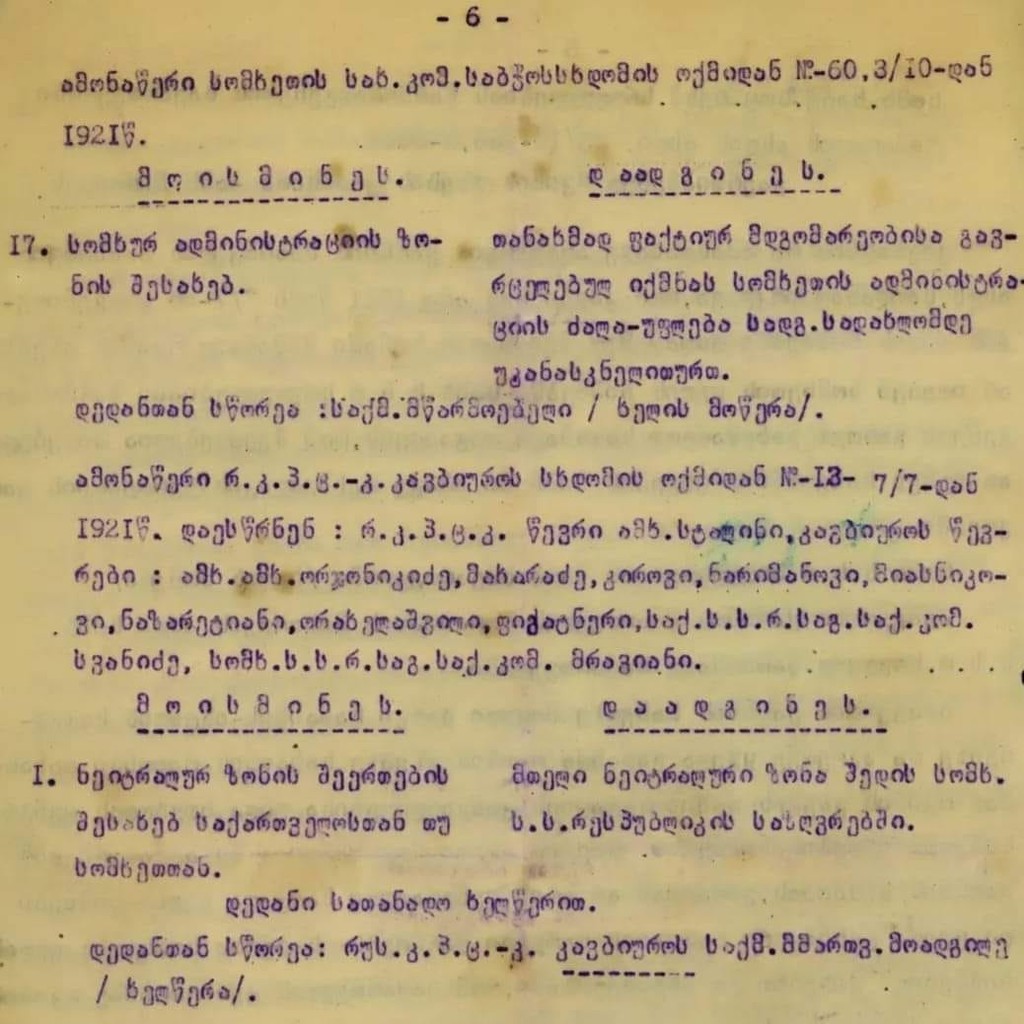 - 6 -
ამონაწერი სომხეთის სახ.კომ.საბჭოსსხდომის ოქმიდან №-60,3/I0-დან
I92Iწ.
მ ო ი ს მ ი ნ ე ს. დ ა ა დ გ ი ნ ე ს.
I7. სომხურ ადმინისტრაციის ზო- თანახმად ფაქტიურ მდგომარეობისა გავ-
ნის შესახებ. რცელებულ იქმნას სომხეთის ადმინისტრა-
ციის ძალა-უფლება სადგ.სადახლომდე
უკანასკნელითურთ.
დედანთან სწორეა :საქმ.მწარმოებელი / ხელის მოწერა/.
ამონაწერი რ.კ.პ.ც.-კ.კავბიუროს სხდომის ოქმიდან №-I3- 7/7-დან
I92Iწ. დაესწრნენ : რ.კ.პ.ც.კ. წევრი ამხ.სტალინი,კავბიუროს წევ-
რები : ამხ.ამხ.ორჯონიკიძე,მახარაძე,კიროვი,ნარიმანოვი,მიასნიკო-
ვი,ნაზარეტიანი,ორახელაშვილი,ფიგატნერი,საქ.ს.ს.რ.საგ.საქ.კომ.
სვანიძე, სომხ.ს.ს.რ.საგ.საქ.კომ. მრავიანი.
მ ო ი ს მ ი ნ ე ს. დ ა ა დ გ ი ნ ე ს.
I. ნეიტრალურ ზონის შეერთების მთელი ნეიტრალური ზონა შედის სომხ.
შესახებ საქართველოსთან თუ ს.ს.რესპუბლიკის სასღვრებში.
სომხეთთან.
დედანი სათანადო ხელწერით.
დედანთან სწორეა: რუს.კ.პ.ც.-კ. კავბიუროს საქმ.მმართვ.მოადგილე
/ ხელწერა/.